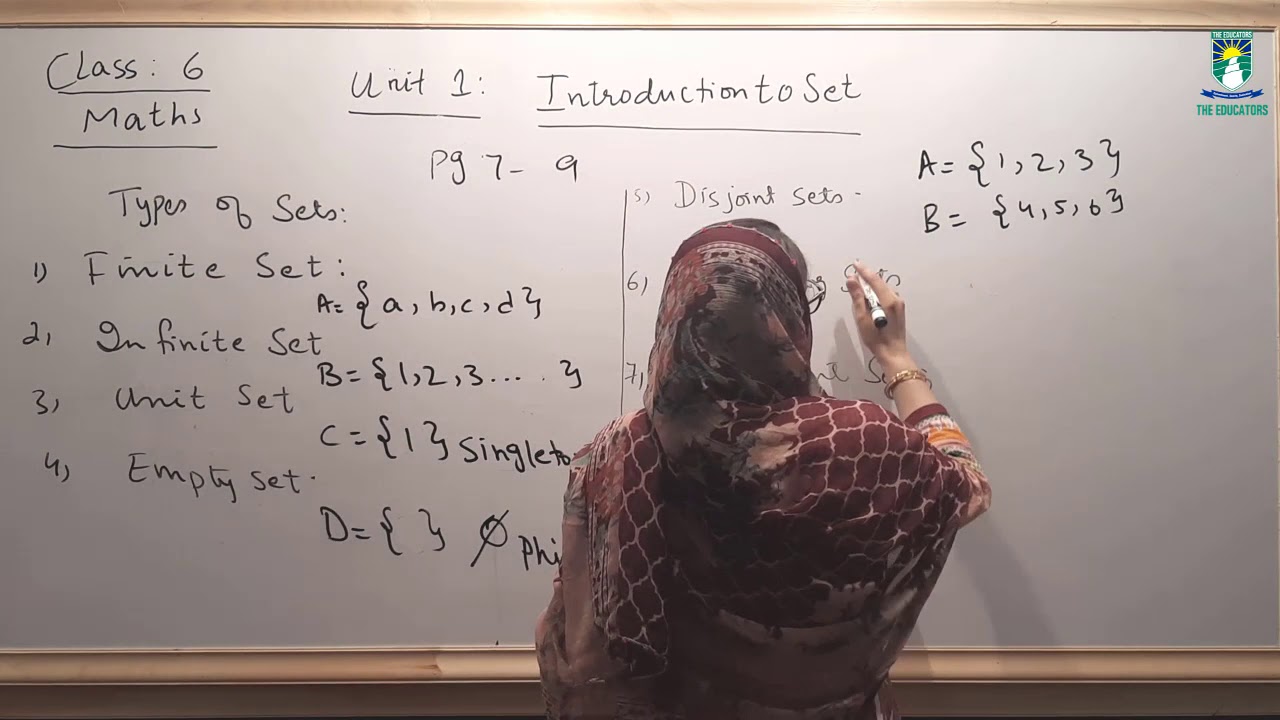 Class: 6
Maths
Unit 1: Introduction to Set
Pg 7- 9
Types of Sets:
1) Finite Set:
A= {a, b, c, d}
2, Infinite Set
B= {1, 2, 3.... }
3, Unit Set
C = {1}
4, Empty set.
D= { } Ø Phi
5) Disjoint Sets -
6,
7,
A= {1, 2, 3}
B= {4, 5, 6}
THE EDUCATORS
THE EDUCATORS